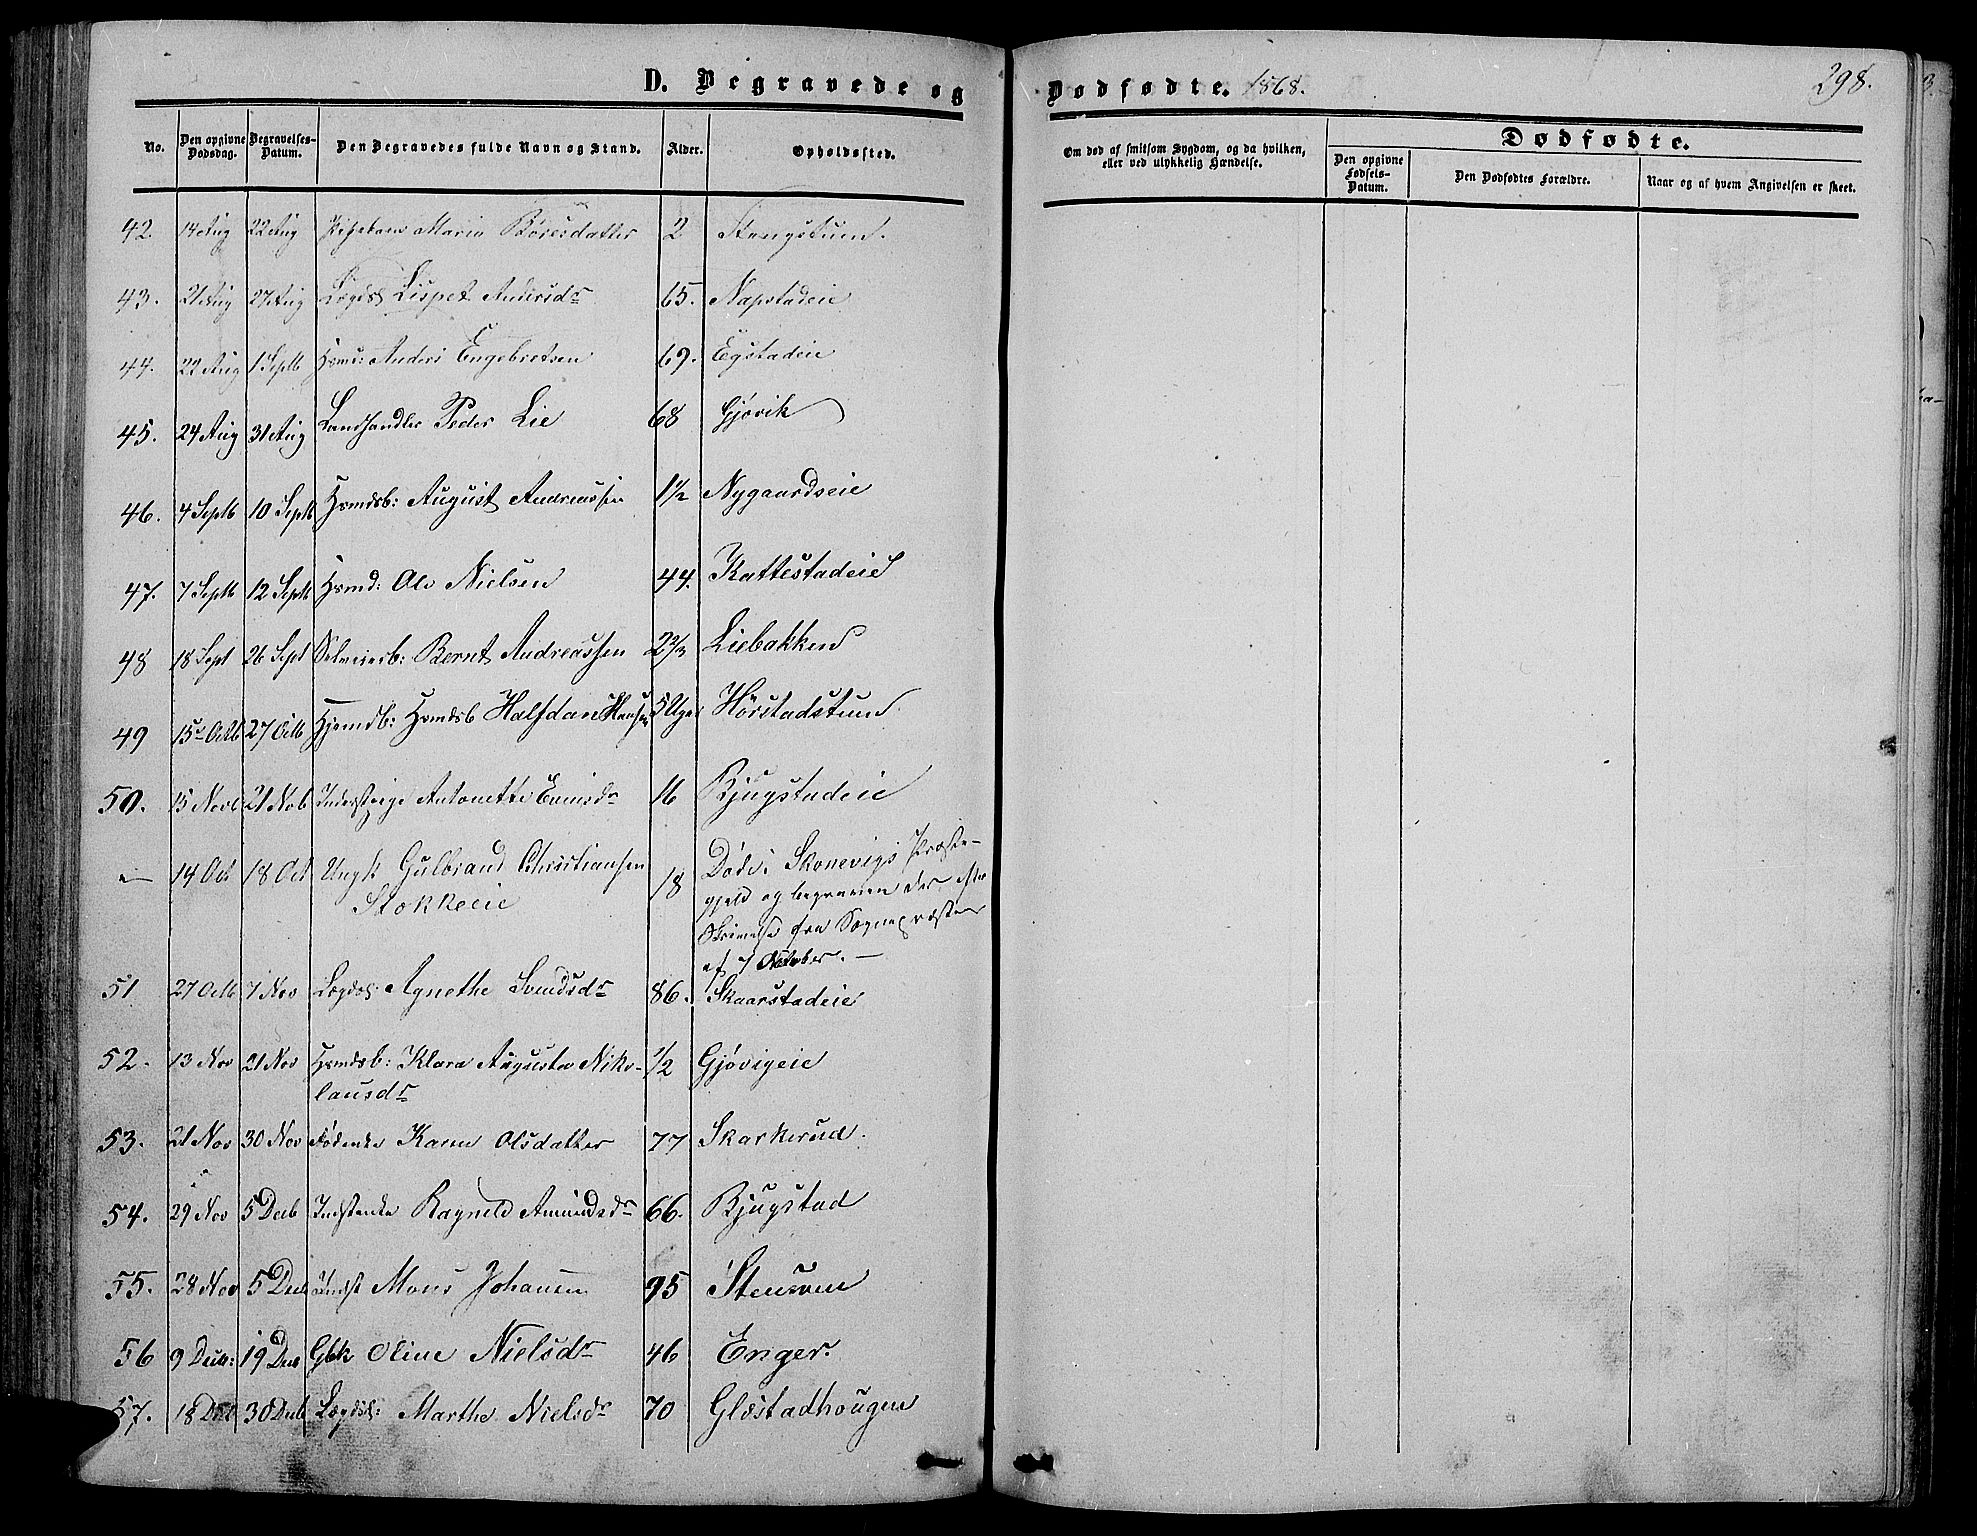 D. Begravede og Dødfødte. 1868. 298.
No. Den opgivne Dødsdag. Begravelses-Datum. Den Begravedes fulde Navn og Stand. Alder. Opholdssted.
Om død af smitsom Sygdom, og da hvilken, eller ved ulykkelig Hændelse.
Dødfødte.
Den opgivne Fødsels-Datum. Den Dødfødtes Forældre. Naar og af hvem Angivelsen er skeet.
42. 14 Aug 22 Aug Maria Böresdatter 2 Stengstuen.
43. 21 Aug 27 Aug Lægdsl Lispet Andersdr 65. Napstadeie
44. 22 Aug 1 Septb Hsmd: Anders Engebretsen 69. Egstadeie
45. 24 Aug 31 Aug Landhandler Peder Lie 68 Gjøvik
46. 4 Septb 10 Septb Hsmdsb: August Andreassen 1½ Nygaardseie
47. 7 Septb 12 Septb Hsmd: Ole Nielsen 44. Kattestadeie
48 18 Sept 26 Sept Selveierb: Bernt Andreassen 2⅔ Liebakken
49 15 Octb 27 Octb Hjemdb: Hsmdsb Halfdan Hansen 5 Uger Hörstadstuen.
50. 15 Novb 21 Nob Antonette Evensdr 16 Bjugstadeie
— 14 Oct 18 Oct Ungk Gulbrand Christiansen 18 Död i Skonevigs Præste-
Stokkeeie gjeld og begraven der efter
Skrivelse fra Sognepræsten
af 7 Oktober. —
51 27 Octb 7 Nov Lægdsl: Agnethe Svendsdr 86. Skaarstadeie
52. 13 Nov 21 Nov Hsmdsb: Klara Augusta Niko- ½ Gjøvigeie
lausdr
53. 21 Nov 30 Nov Føderenke Karen Olsdatter 77 Skarkerud.
54. 29 Nov 5 Decb Indstenke Ragneld Amundsdr 66. Bjugstad
55. 28 Nov 5 Decb Indst Mons Johansen 95 Stensven
56 9 Decb: 19 Dec Gbk Oline Nielsdr 46 Enger.
57. 18 Dec 30 Decb Lægdsl: Marthe Nielsdr 70 Glæstadhougen